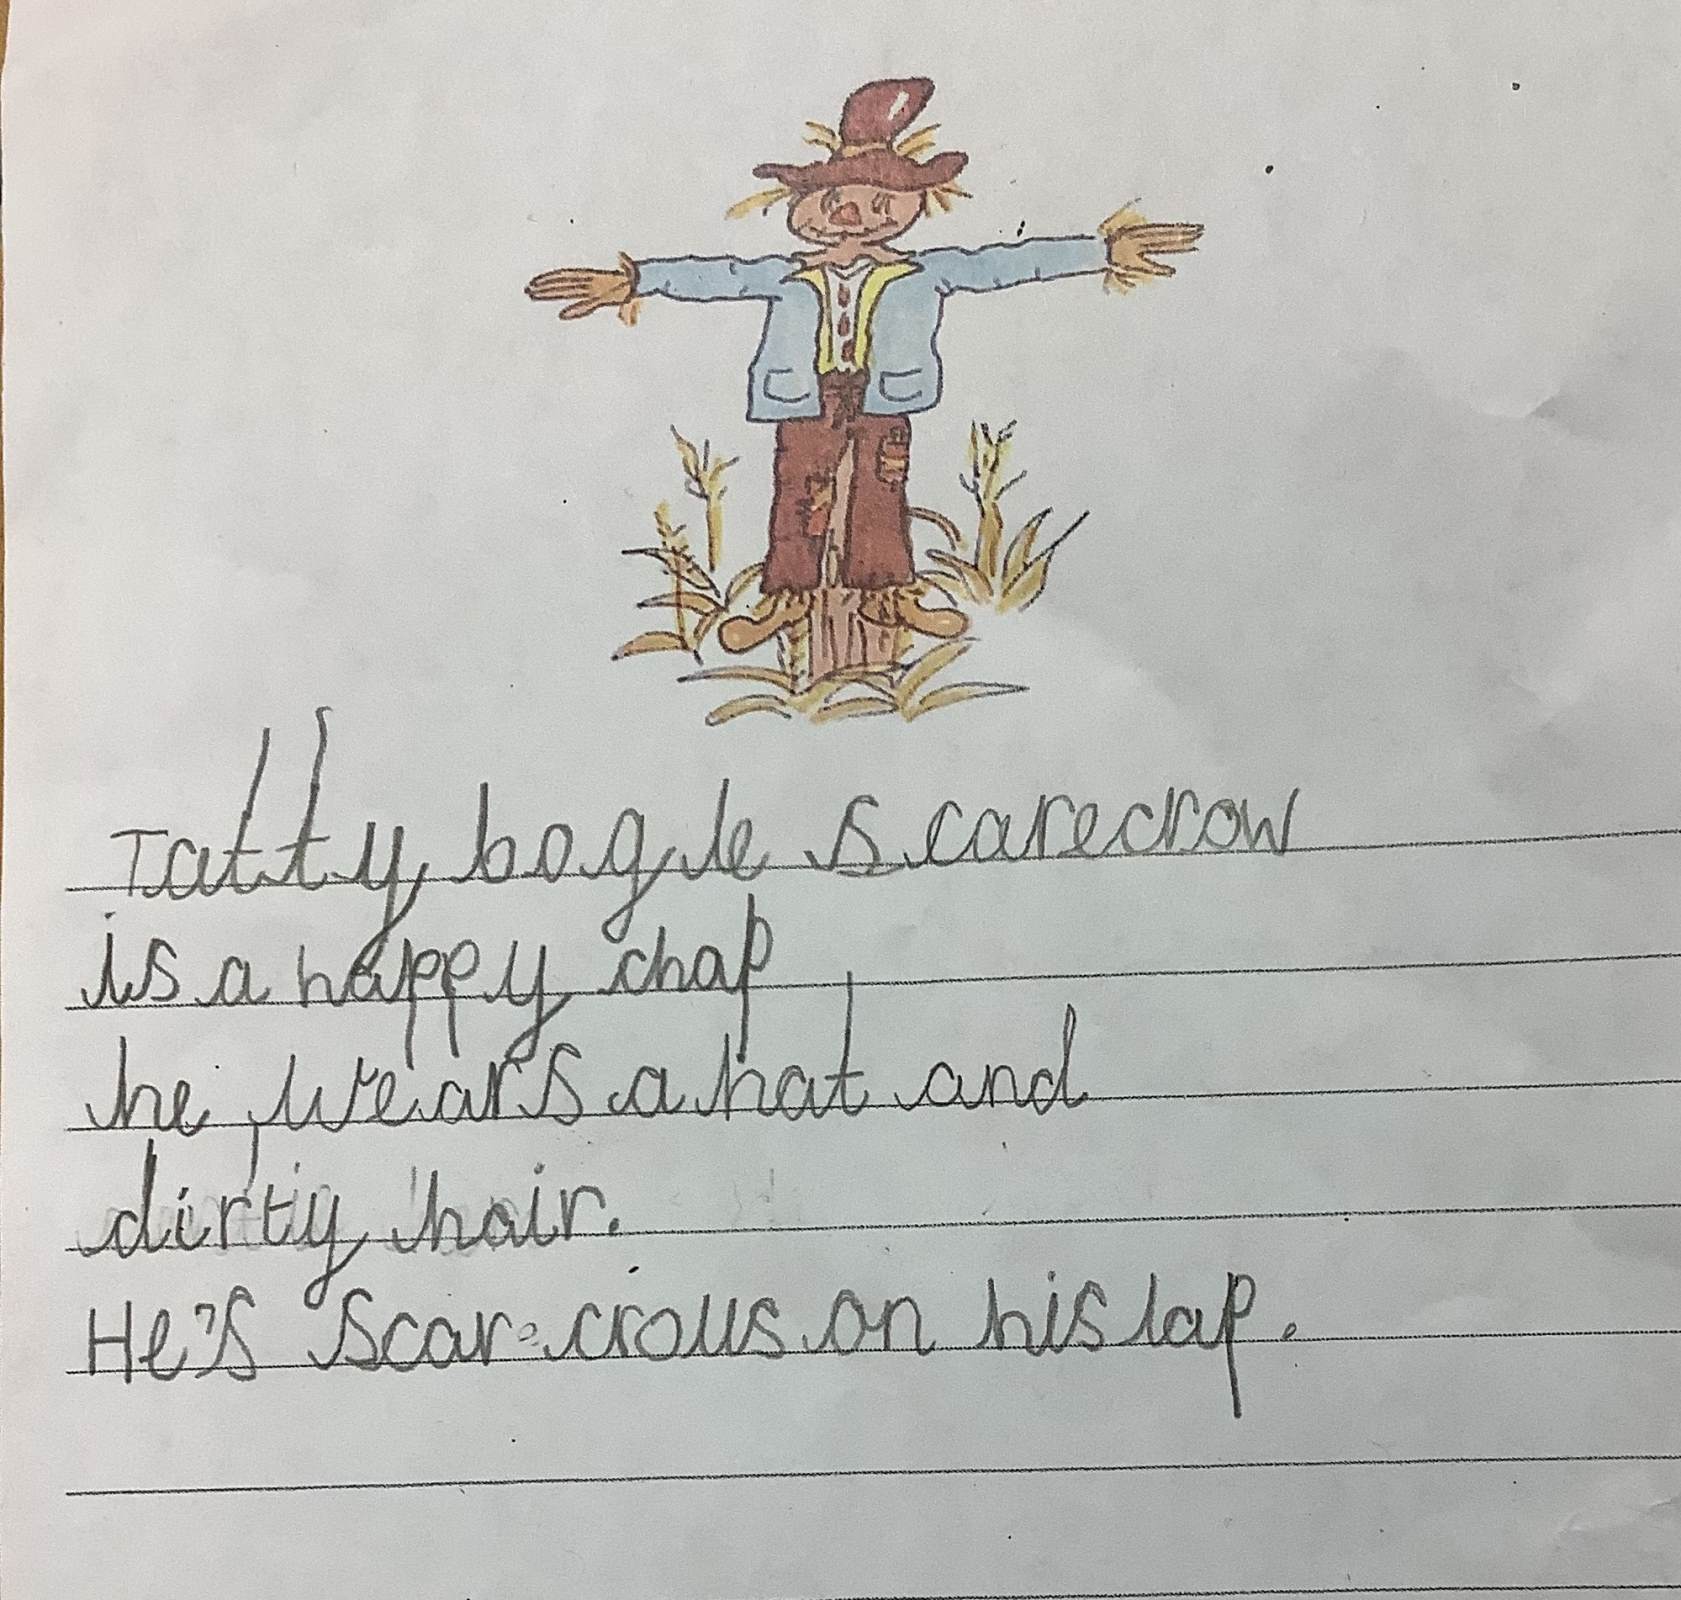 Tatty bogle scarecrow
is a happy chap
he wears a hat and
dirty hair.
He's scar crows on his lap.